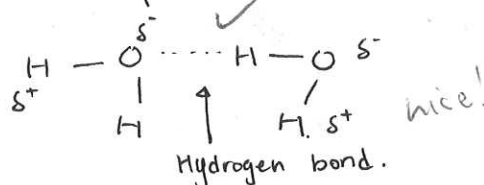 δ⁻
H — O ······ H — O δ⁻
δ⁺
H H. δ⁺ nice!
Hydrogen bond.